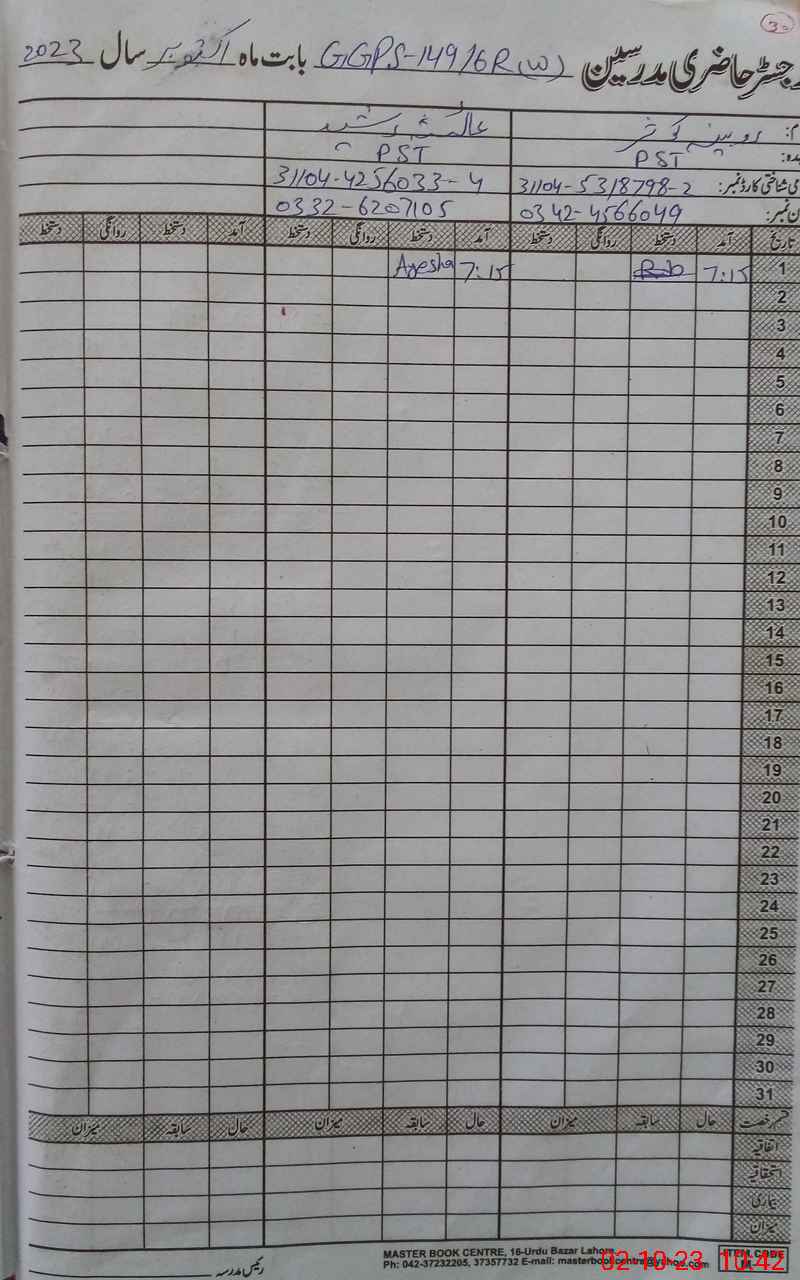 30
رجسٹر حاضری مدرسین GGPS-149/6R(W) بابت ماہ اکتوبر سال 2023
روبینہ کوثر عائشہ رشید
PST PST
شناختی کارڈ نمبر: 31104-5318798-2 31104-4256033-4
ن نمبر: 0342-4566049 0332-6207105
تاریخ آمد دستخط روانگی دستخط آمد دستخط روانگی دستخط آمد دستخط روانگی دستخط
1 7:15 Rub 7:15 Ayesha
2
3
4
5
6
7
8
9
10
11
12
13
14
15
16
17
18
19
20
21
22
23
24
25
26
27
28
29
30
31
قسم رخصت حال سابقہ میزان حال سابقہ میزان حال سابقہ میزان
اتفاقیہ
استحقاقیہ
بیماری
میزان
رئیس مدرسہ
MASTER BOOK CENTRE, 16-Urdu Bazar Lahore
Ph: 042-37232205, 37357732 E-mail: masterbookcentre@yahoo.com
ITEM CODE
M-
02-10-23 10:42